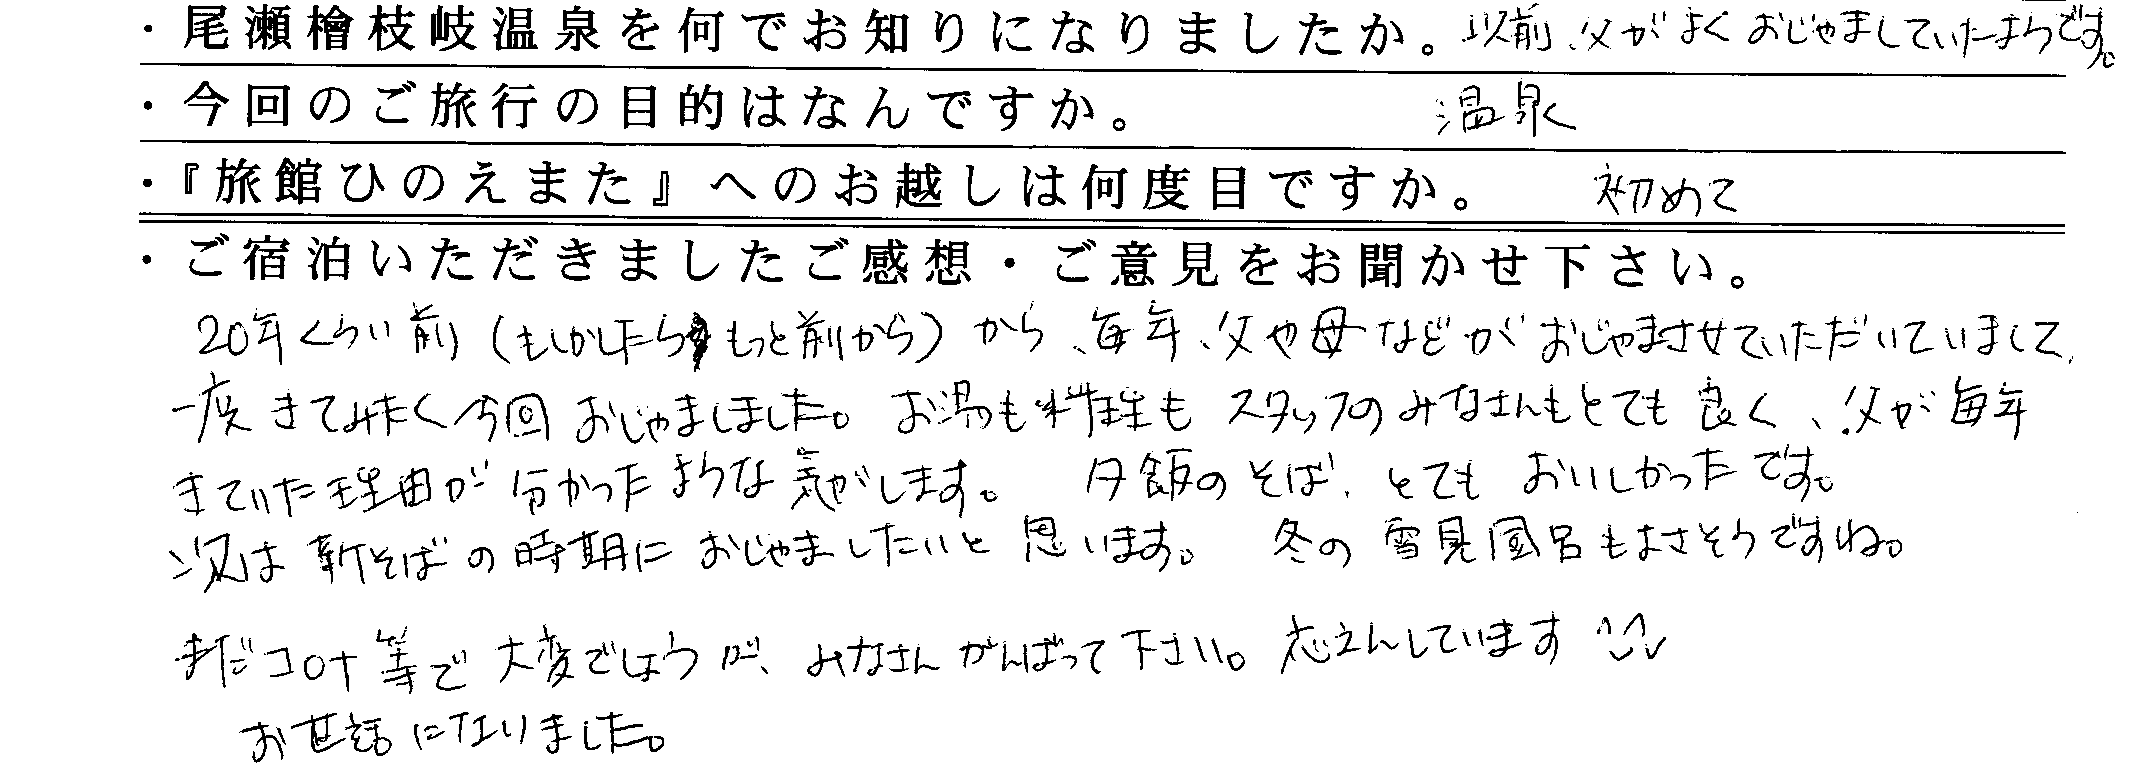 ・尾瀬檜枝岐温泉を何でお知りになりましたか。 以前、父がよくおじゃましていたようです。
・今回のご旅行の目的はなんですか。 温泉
・『旅館ひのえまた』へのお越しは何度目ですか。 初めて
・ご宿泊いただきましたご感想・ご意見をお聞かせ下さい。
20年くらい前(もしかしたらもっと前から)から、毎年、父や母などがおじゃまさせていただいていまして、
一度きてみたく今回おじゃましました。お湯も料理もスタッフのみなさんもとても良く、父が毎年
きていた理由が分かったような気がします。 夕飯のそば、とてもおいしかったです。
次は新そばの時期におじゃましたいと思います。 冬の雪見風呂もよさそうですね。
まだコロナ等で大変でしょうが、みなさんがんばって下さい。応えんしています
お世話になりました。